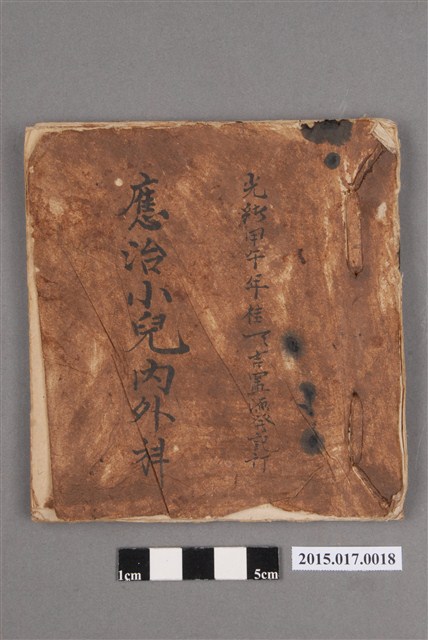 光緒甲午年桂下吉置
應治小兒內外科
1cm 5cm
2015.017.0018